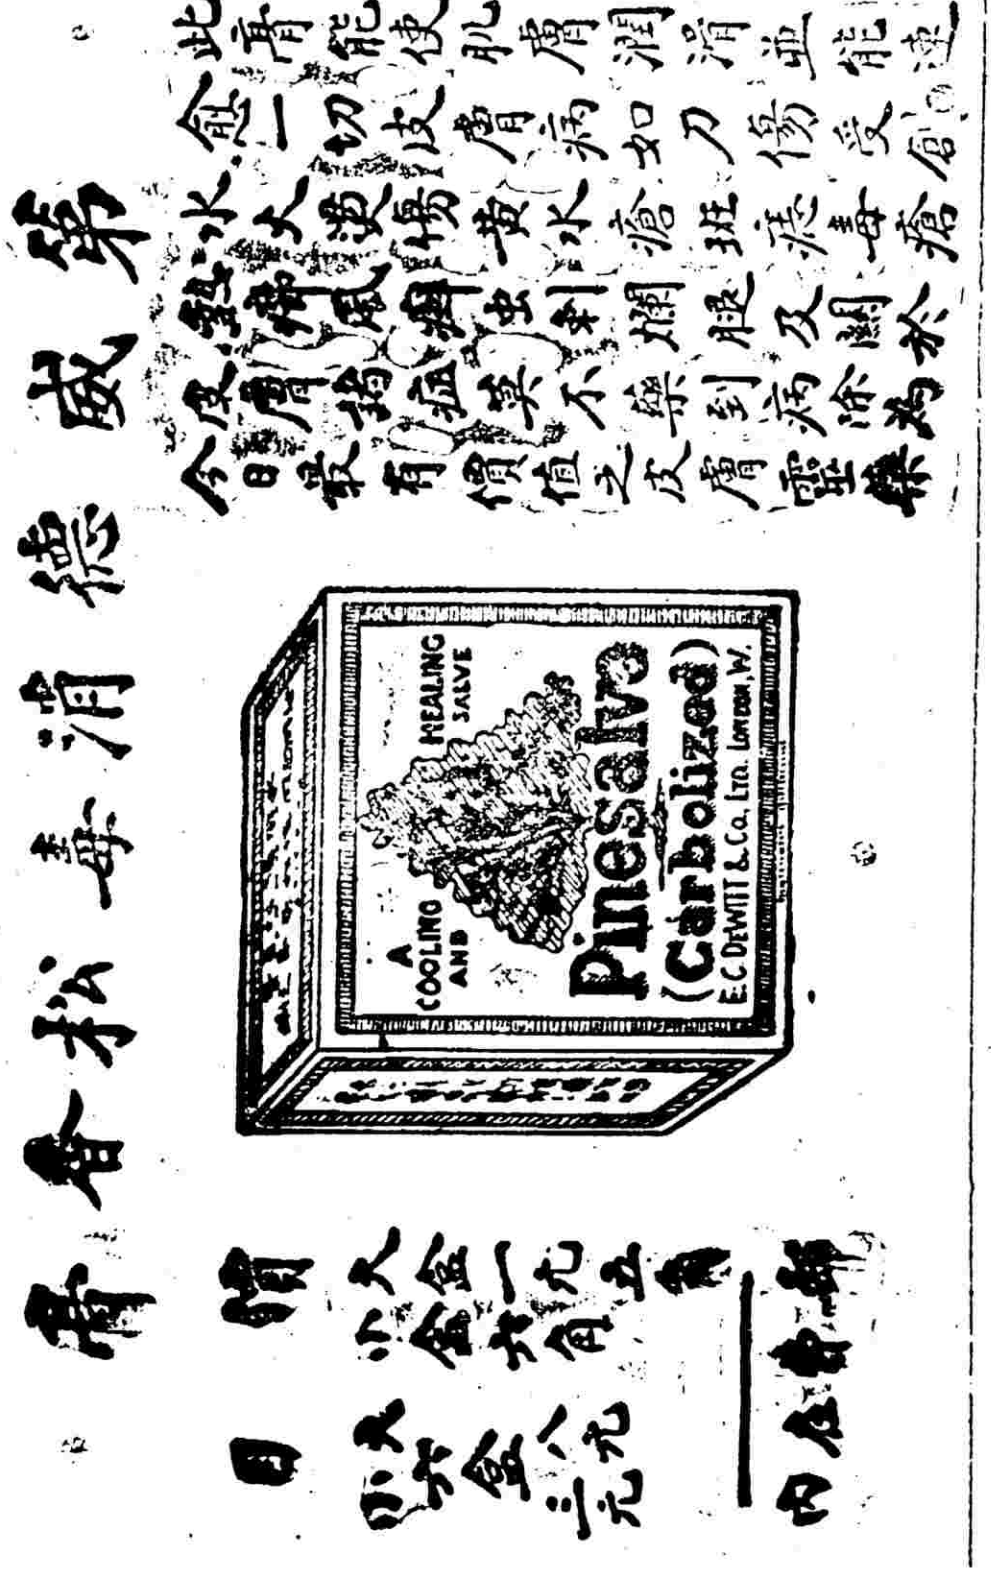 第威德消毒松香膏
此膏能使肌膚潤滑並能速
愈一切皮膚病如刀傷受創
水火燙傷黃水瘡班痣毒瘡
風癬虫刺爛腿及關於
皮膚諸症莫不藥到病除為
今日最有價值之皮膚靈藥
A
COOLING HEALING
AND SALVE
Pinesalve
(Carbolized)
E.C. DEWITT & Co., LTD. LONDON, W.
價目
大盒一元五角
小盒六角
大六盒八元
小六盒三元
郵費在內